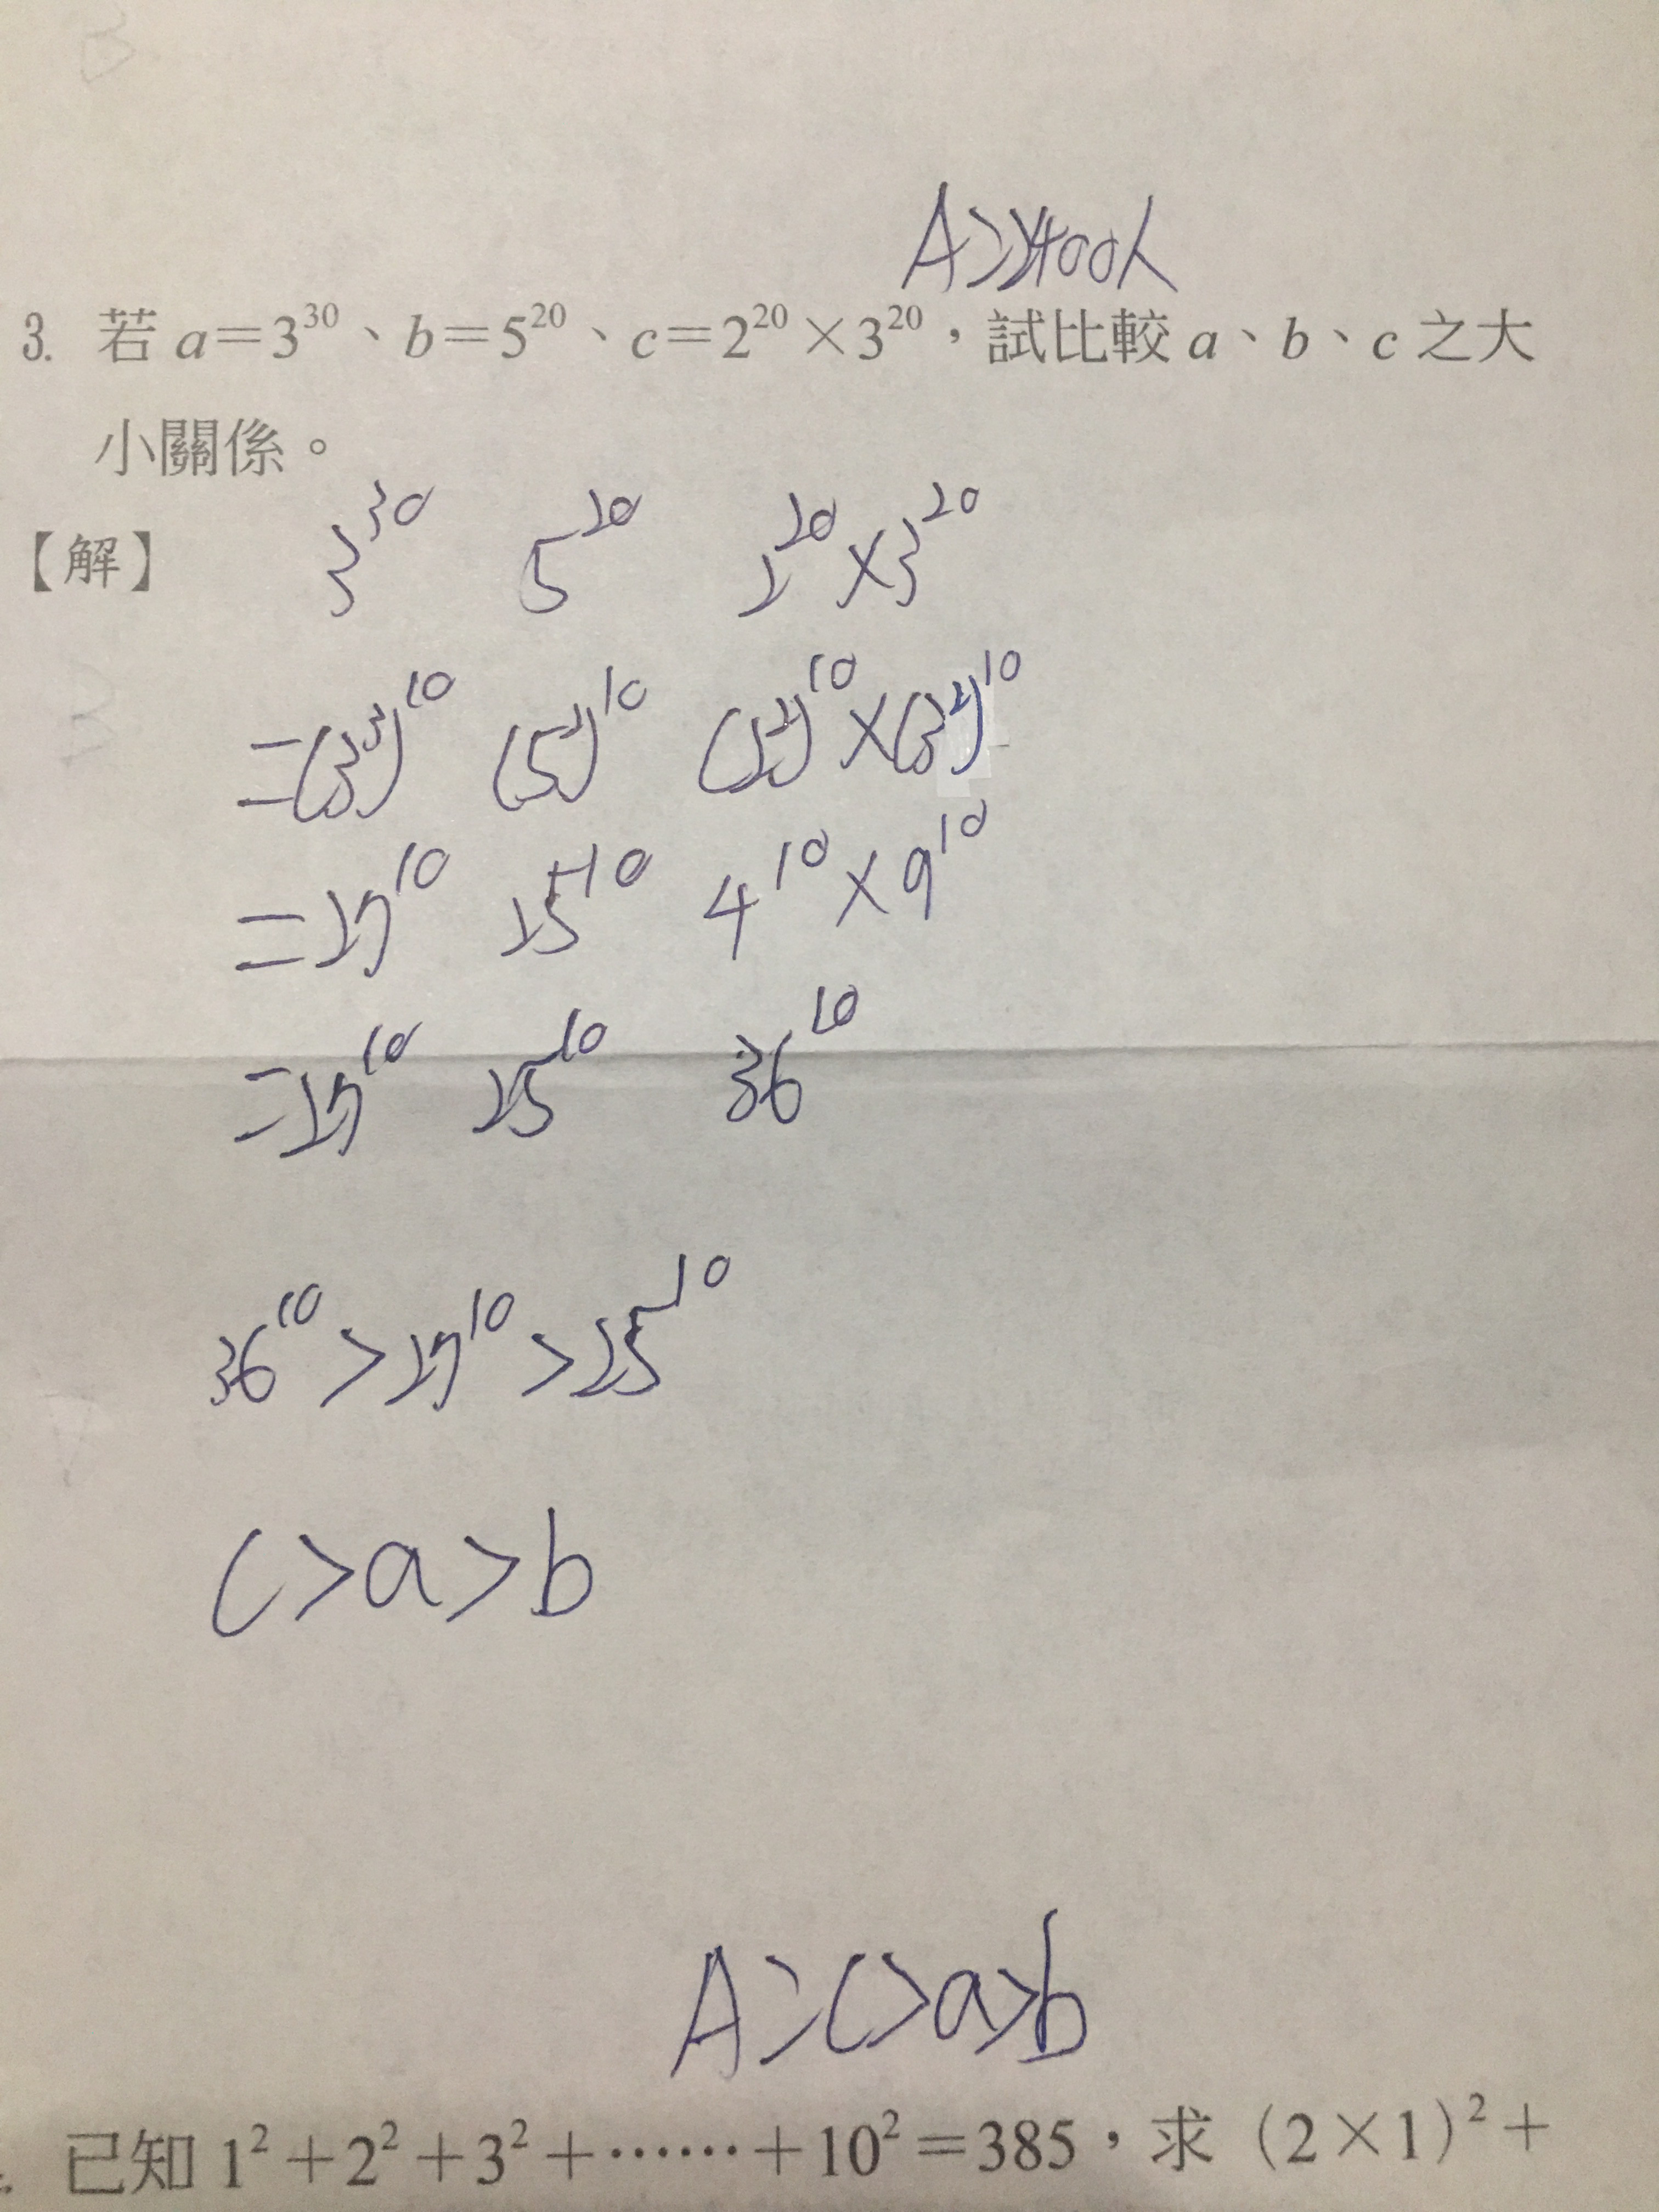 A：2400人
3. 若 a＝3³⁰、b＝5²⁰、c＝2²⁰×3²⁰，試比較 a、b、c 之大
小關係。
【解】 3³⁰ 5²⁰ 2²⁰×3²⁰
=(3³)¹⁰ (5²)¹⁰ (2²)¹⁰×(3²)¹⁰
=27¹⁰ 25¹⁰ 4¹⁰×9¹⁰
=27¹⁰ 25¹⁰ 36¹⁰
36¹⁰>27¹⁰>25¹⁰
c>a>b
A：c>a>b
已知 1²＋2²＋3²＋……＋10²＝385，求（2×1）²＋